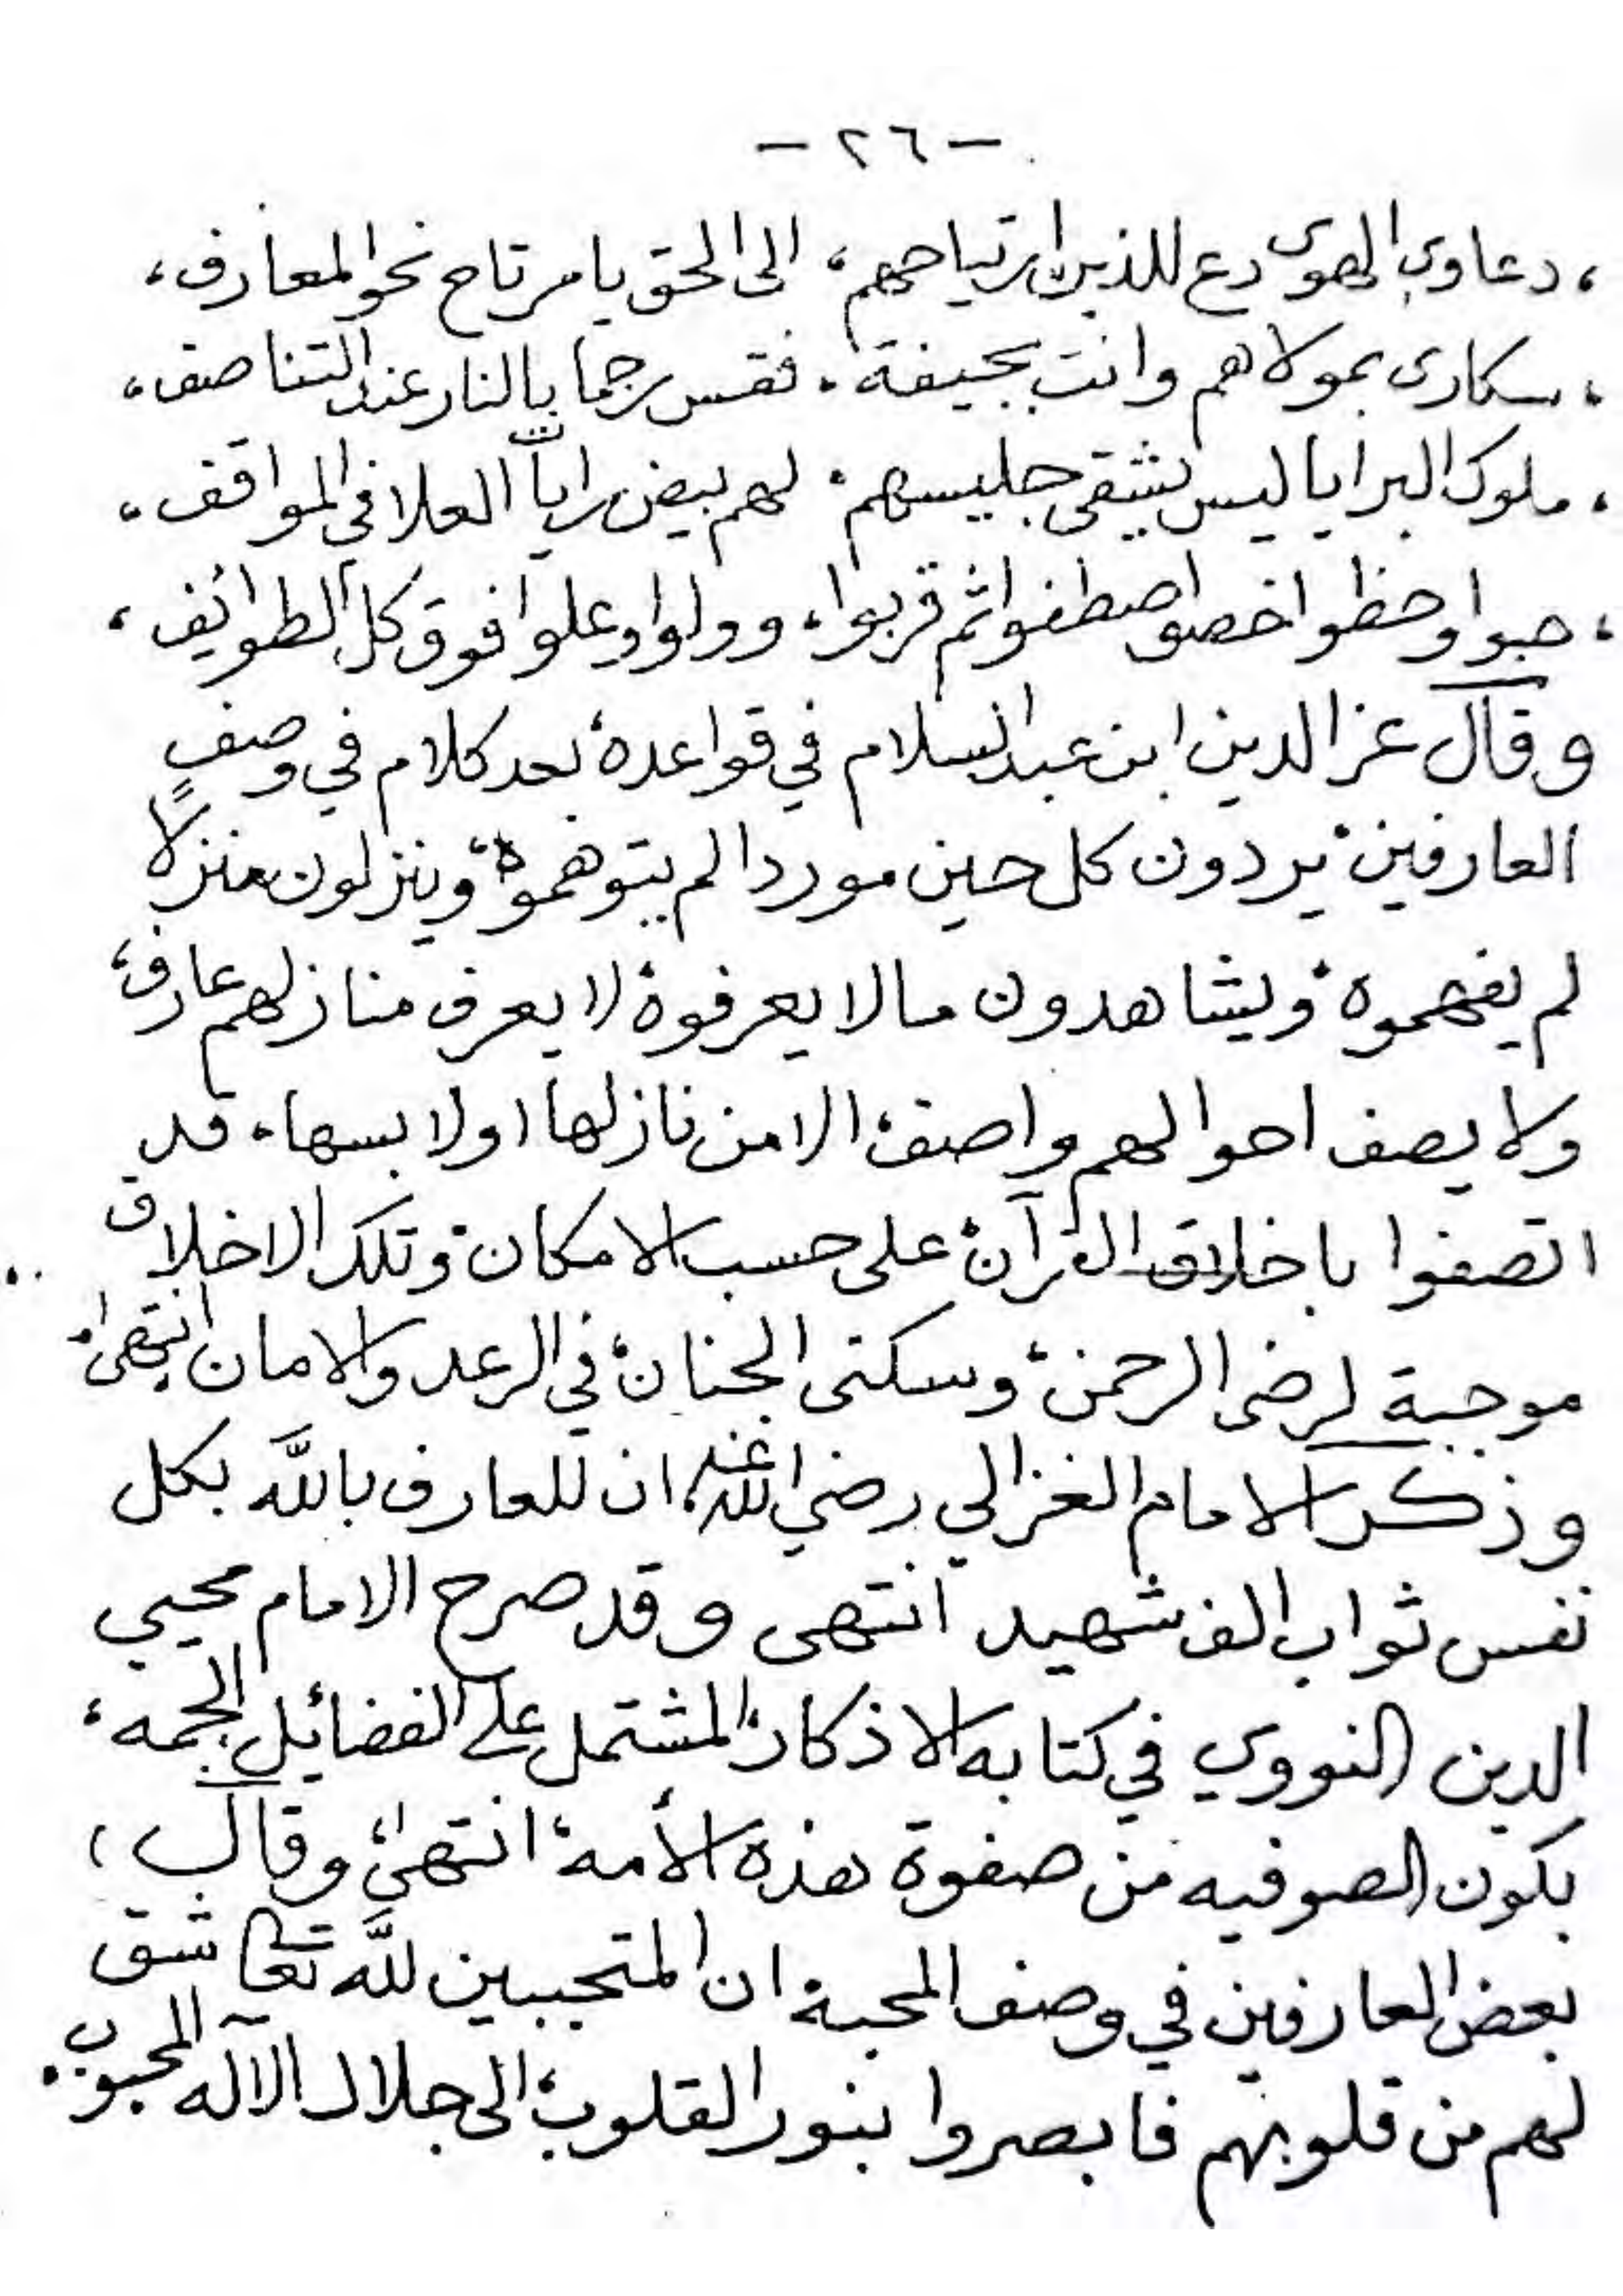 - ٢٦ -
، دعاوي الهوى دع للذين ارتياحهم، الى الحق يا مرتاح نحو المعارف،
، سكارى بمولاهم وانت بجيفة، فقس رجما بالنار عند التناصف،
، ملوك البرايا ليس يشقى جليسهم، لهم بيض رايات العلا في المواقف،
، حبوا وحظوا خصوا صطفوا ثم قربوا، وولوا وعلوا فوق كل الطوائف،
وقال عز الدين ابن عبد السلام في قواعده، بعد كلام في وصفٍ
العارفين، يردون كل حين موردا لم يتوهموه، وينزلون منزلا
لم يفهموه، ويشاهدون مالا يعرفوه، لا يعرف منازلهم عارف،
ولا يصف احوالهم واصف، الا من نازلها اولابسها، قد
اتصفوا باخلاق القرآن، على حسب الامكان، وتلك الاخلاق
موجبة لرضى الرحمن، وسكنى الجنان، في الرعد والامان انتهى،
وذكر الامام الغزالي رضي الله عنه، ان للعارف باللَّه بكل
نفس ثواب الف شهيد انتهى وقد صرح الامام محيي
الدين النووي في كتابه الاذكار، المشتمل على الفضائل الجمه،
بكون الصوفيه من صفوة هذه الأمه، انتهى، وقال،
بعض العارفين في وصف المحبة ان المتحببين للَّه تعالى شق
لهم من قلوبهم فابصروا بنور القلوب، الى جلال الآله المحبوب،